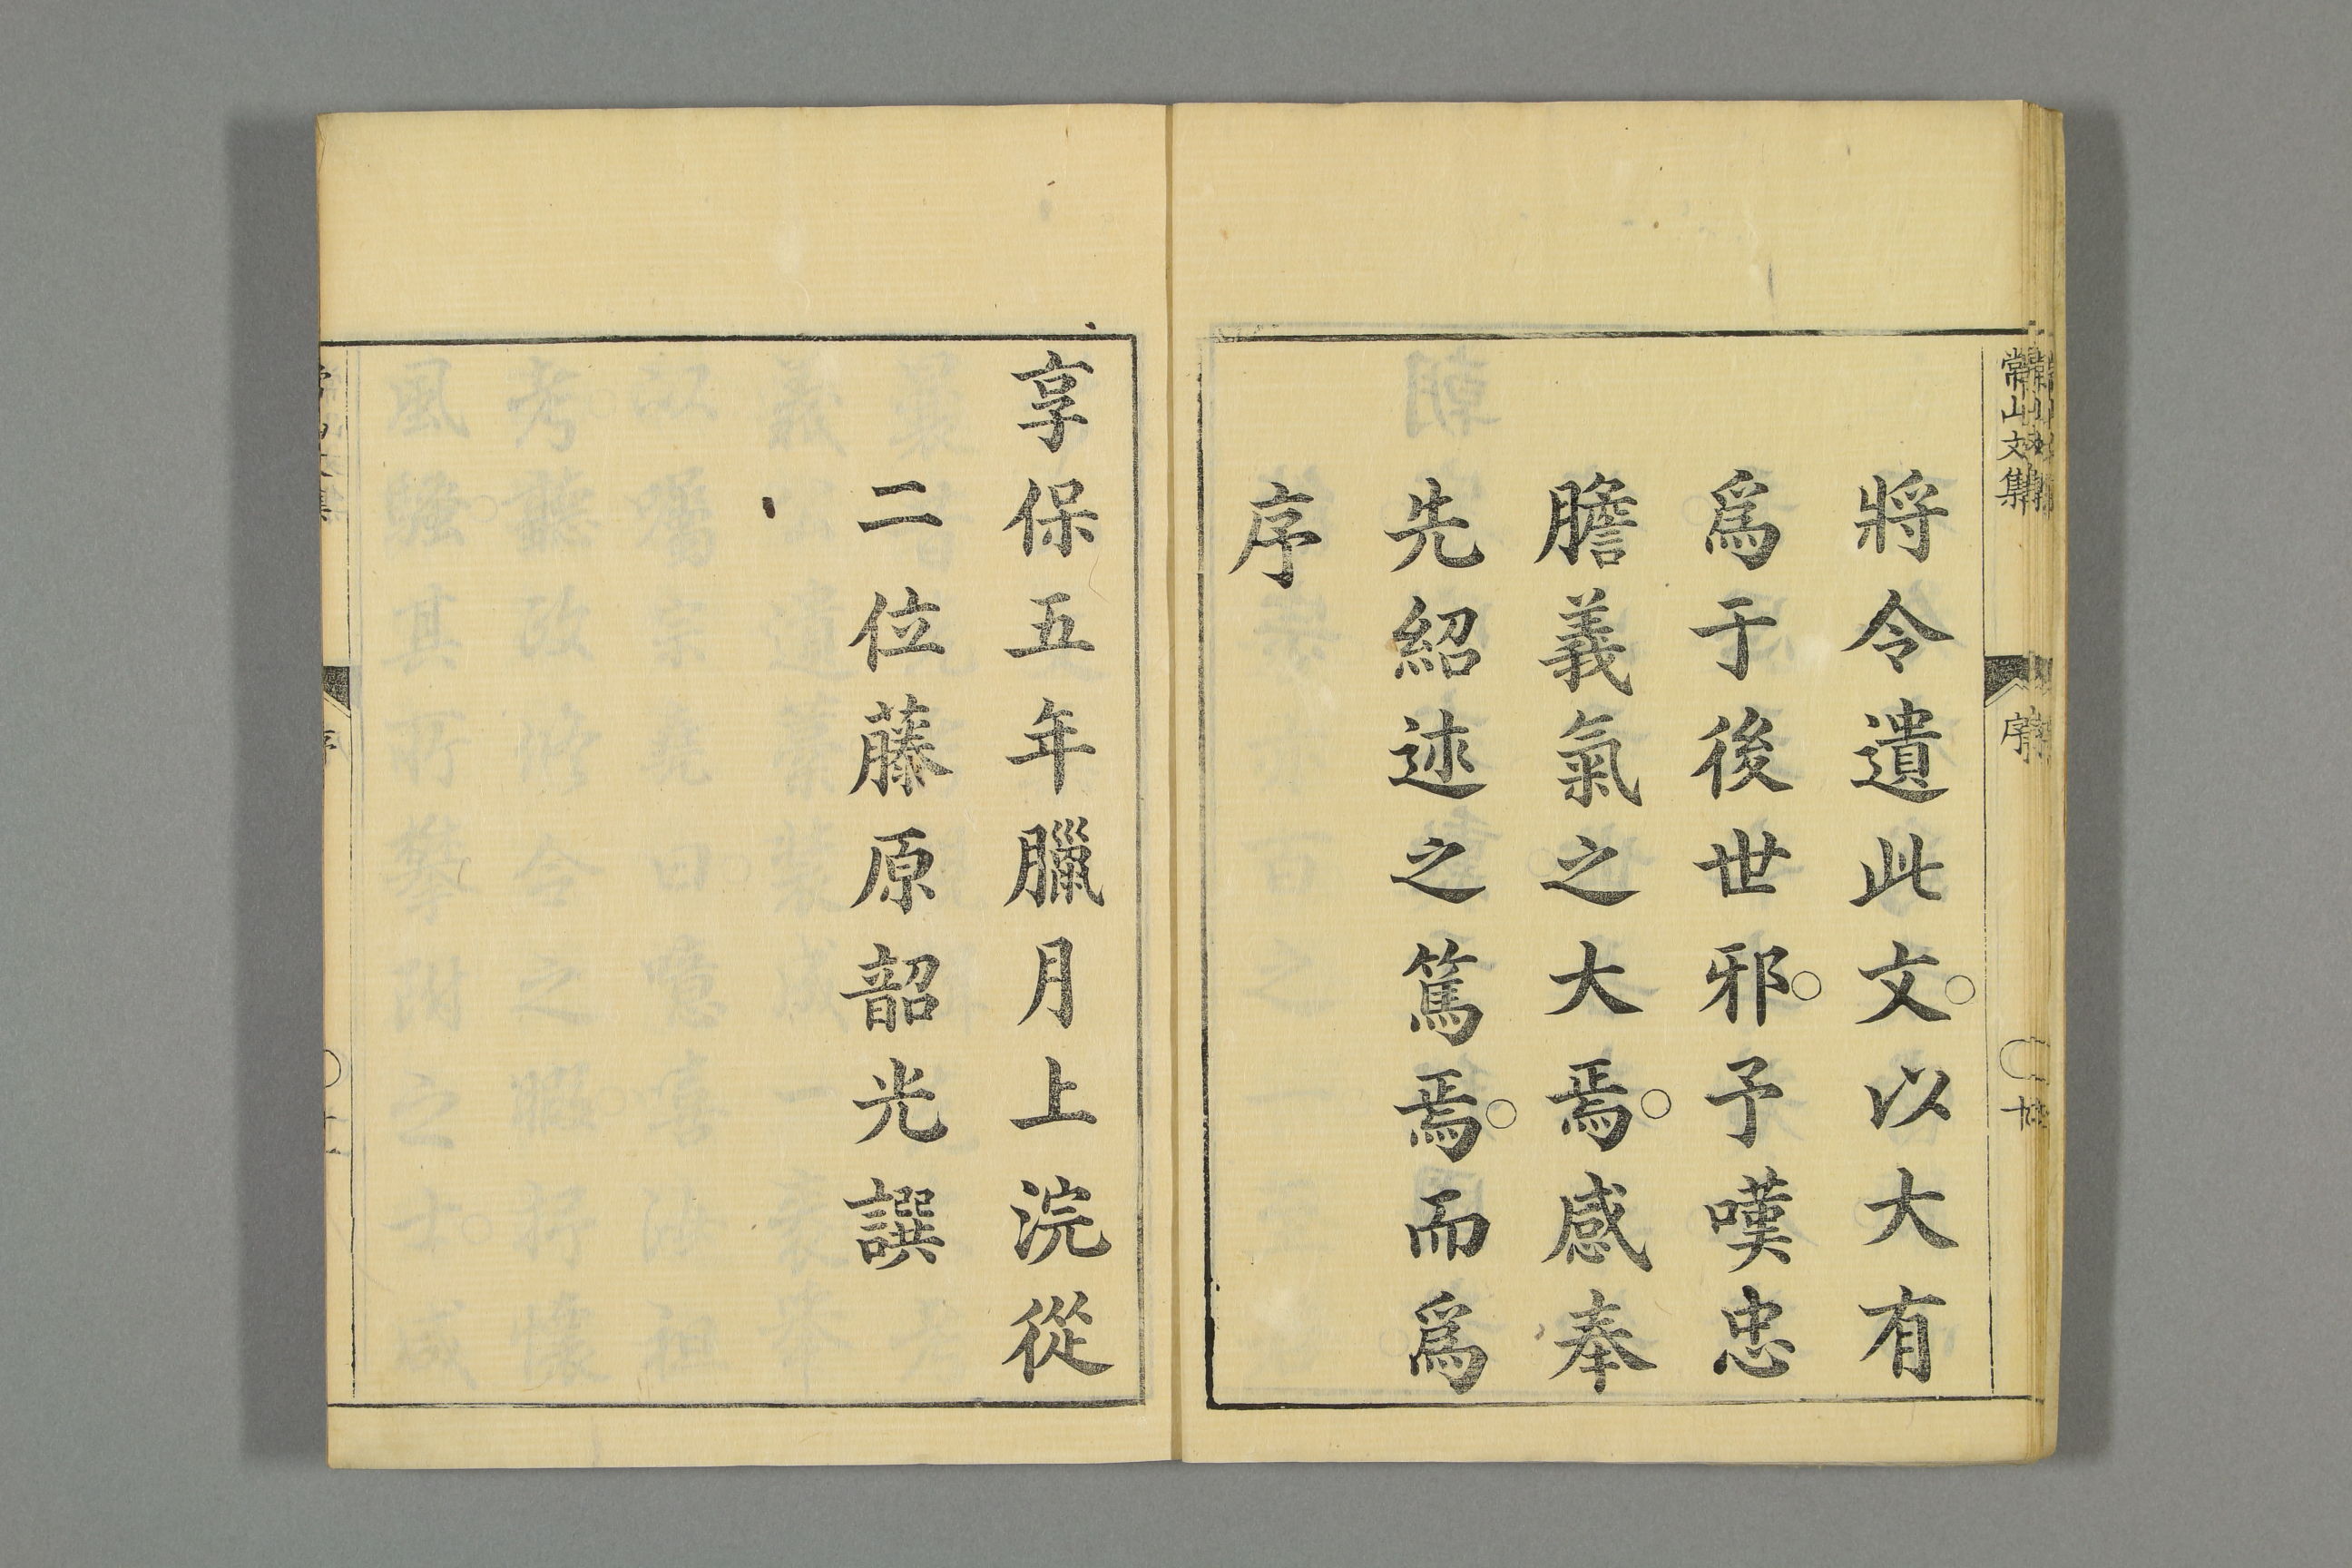 常山文集
序
將令遺此文○以大有
爲于後世邪○予嘆忠
膽義氣之大焉○感奉
先紹述之篤焉○而爲
序
享保五年臘月上浣從
二位藤原韶光譔